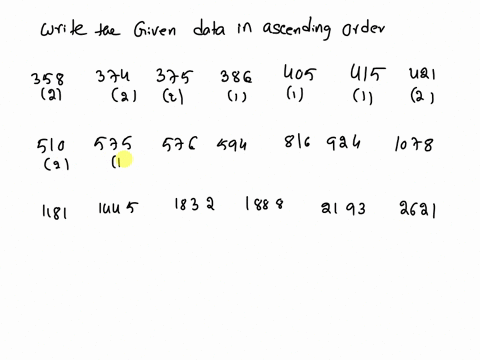 write the Given data in ascending order
358 374 375 386 405 415 421
(2) (2) (2) (1) (1) (1) (2)
510 575 576 594 816 924 1078
(2) (1
1181 1445 1832 1888 2193 2621